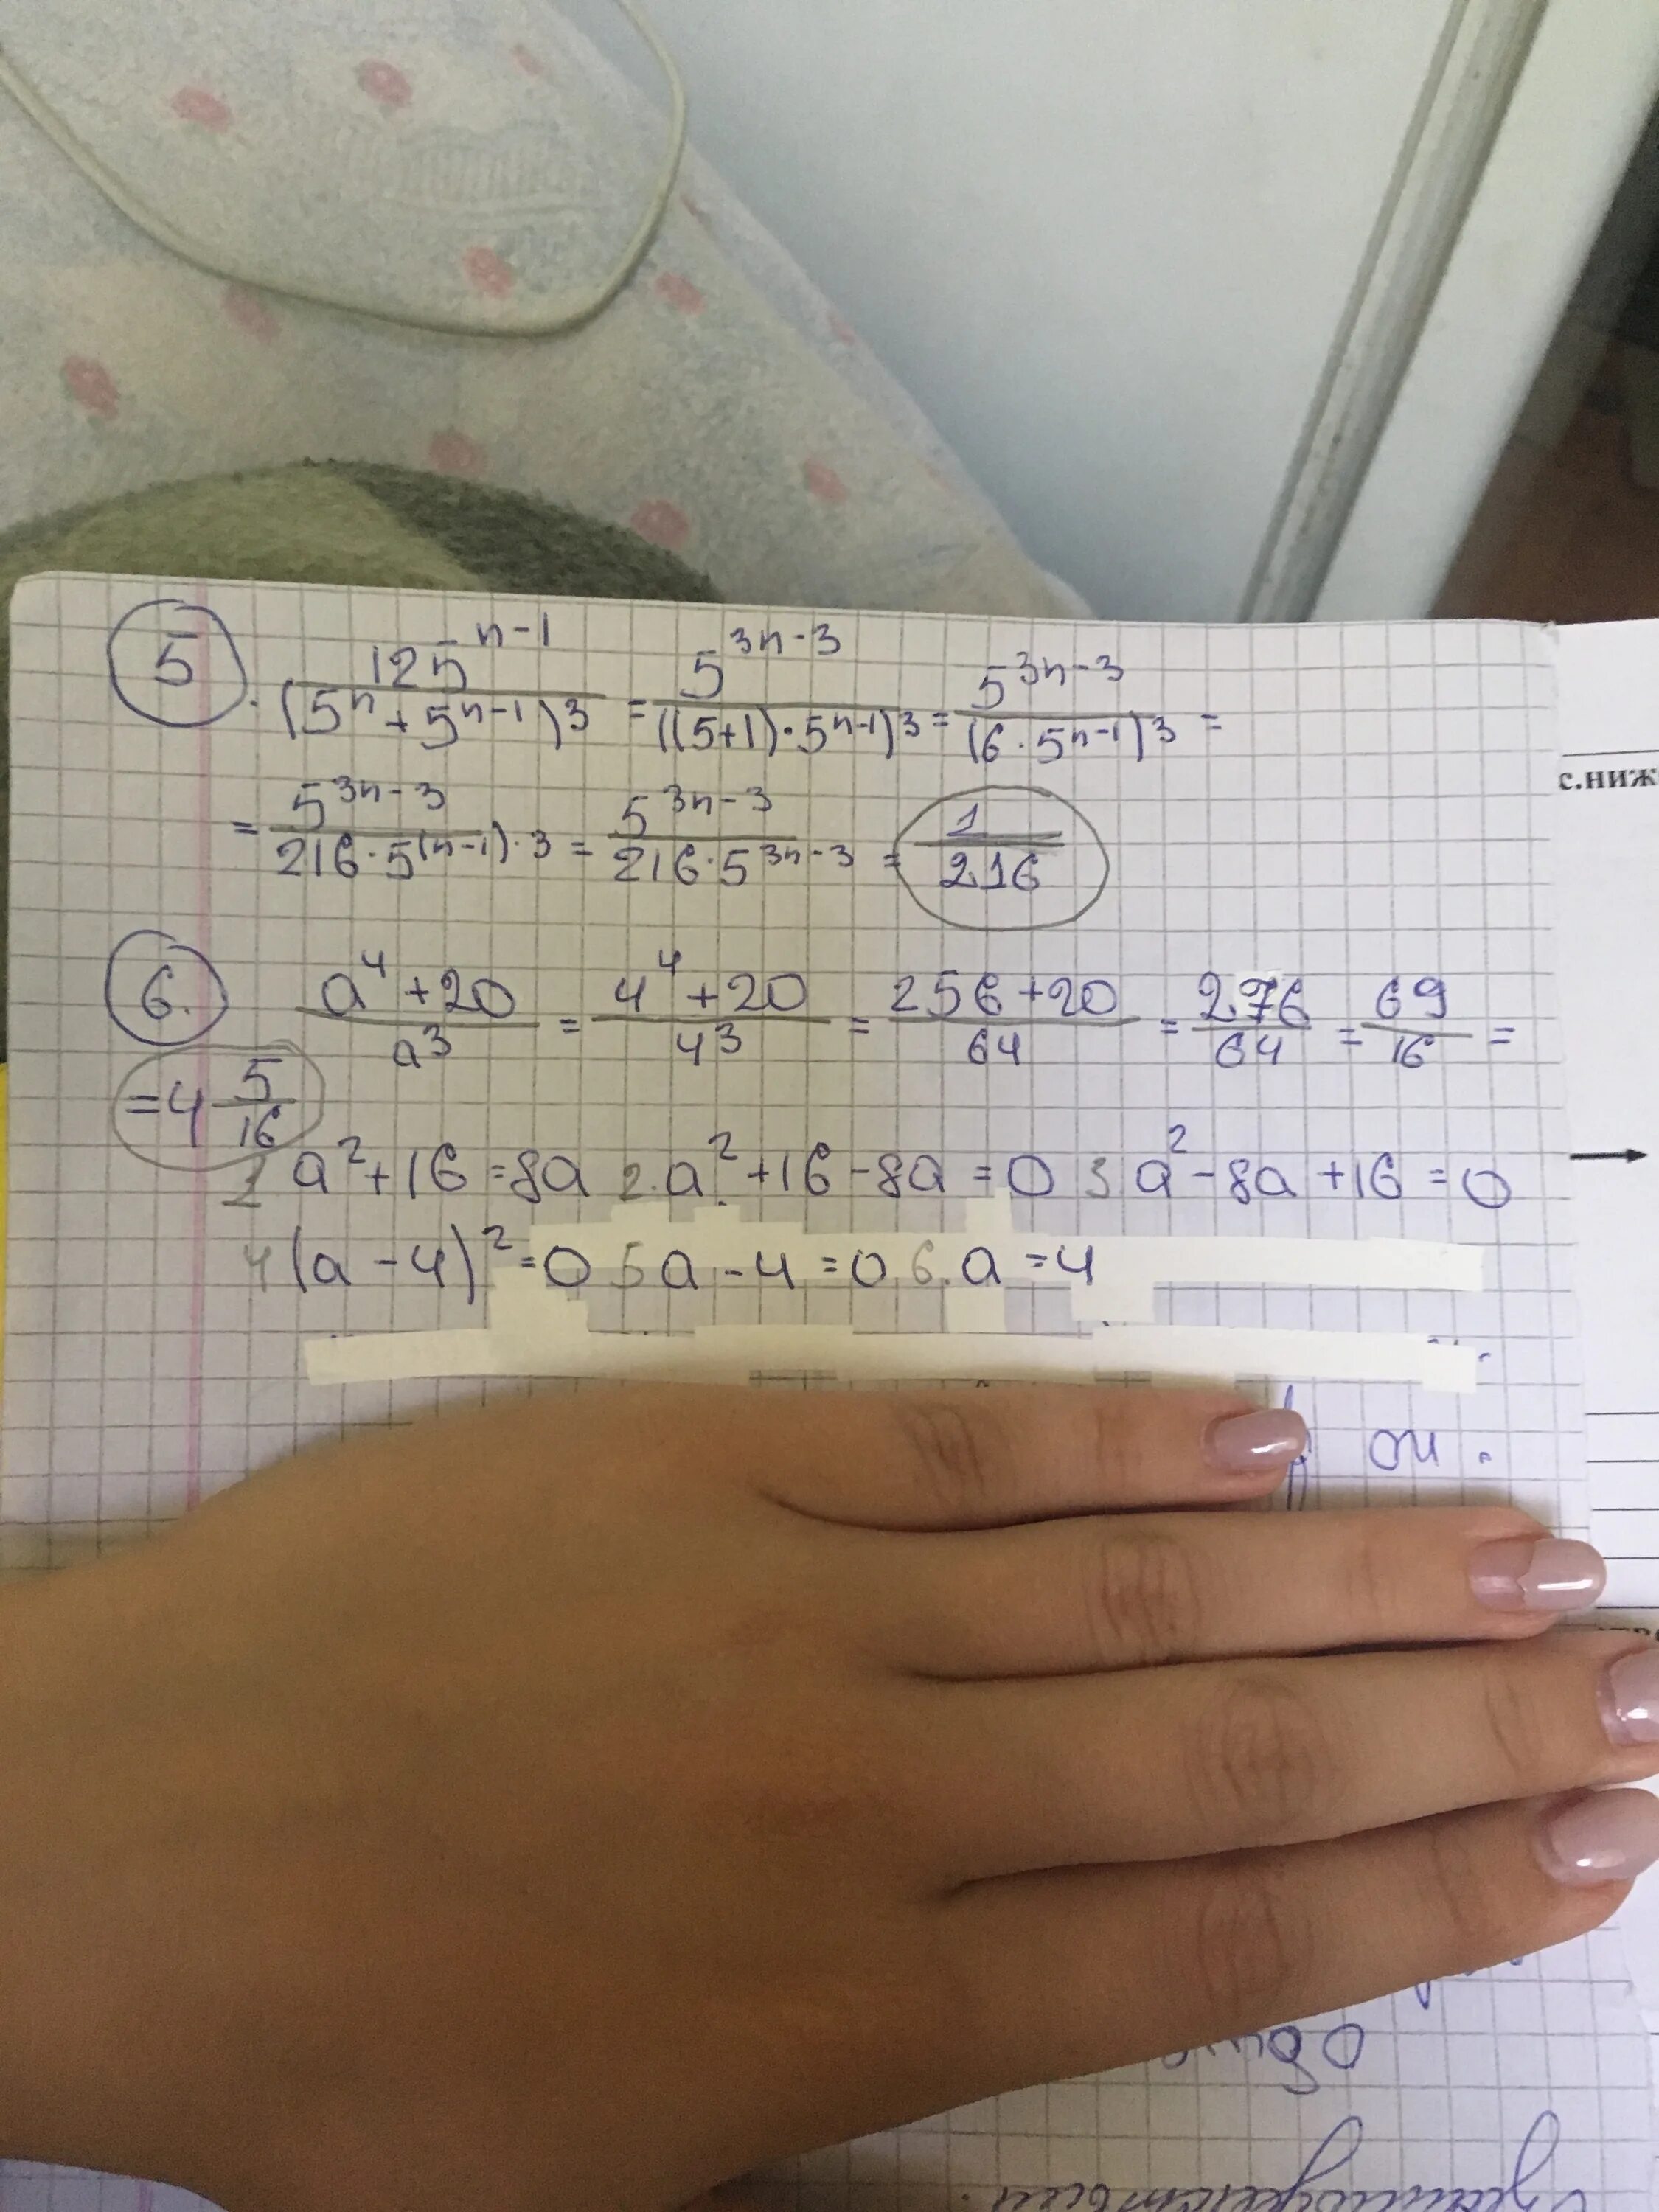 5. 125^{n-1}/(5^n+5^{n-1})^3 = 5^{3n-3}/((5+1)·5^{n-1})^3 = 5^{3n-3}/(6·5^{n-1})^3 =
= 5^{3n-3}/216·5^{(n-1)·3} = 5^{3n-3}/216·5^{3n-3} = 1/216
6. a^4+20/a^3 = 4^4+20/4^3 = 256+20/64 = 276/64 = 69/16 =
= 4 5/16
1 a^2+16=8a 2. a^2+16-8a=0 3 a^2-8a+16=0
4 (a-4)^2=0 5 a-4=0 6. a=4
с.ниж